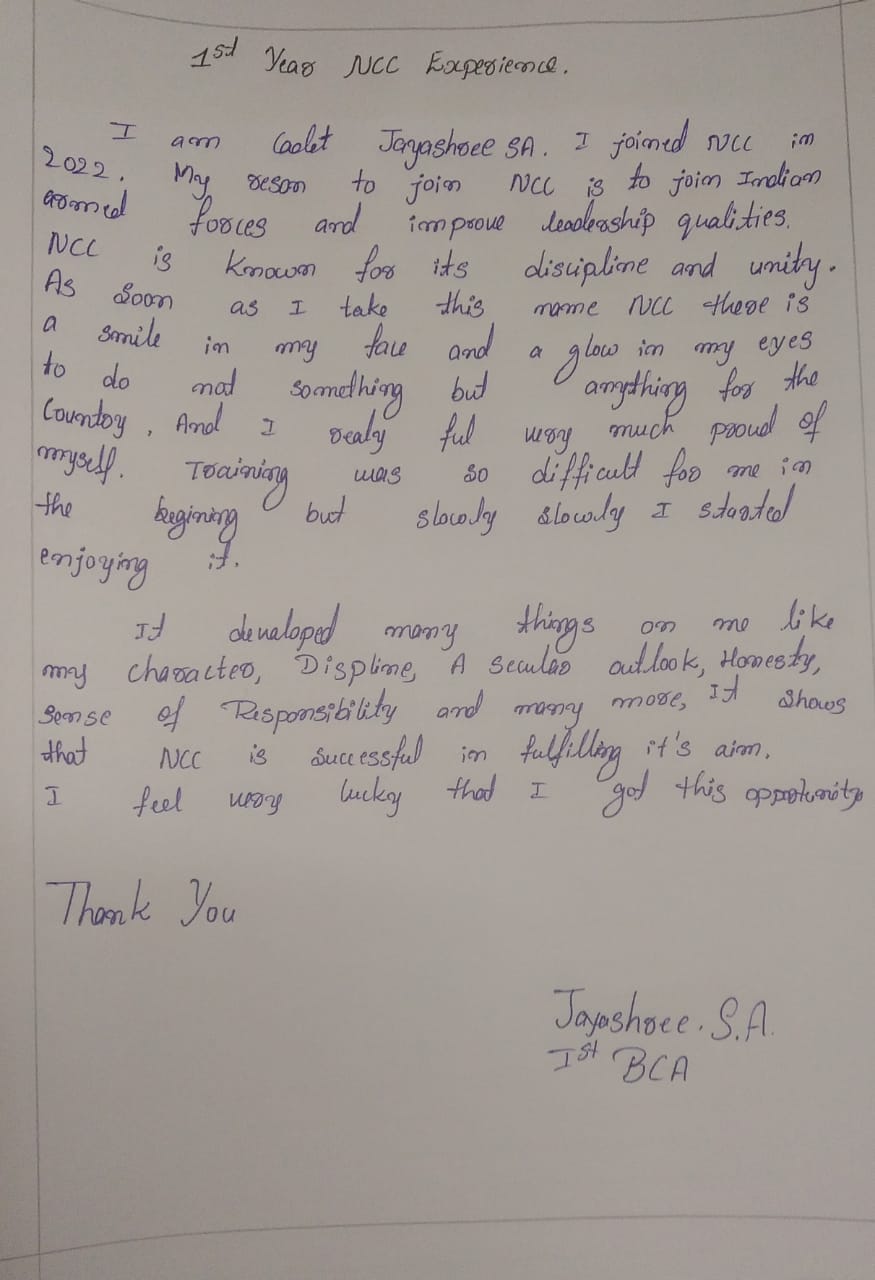 1st Year NCC Experience.
I am Cadet Jayashree SA. I joined NCC in
2022. My reson to join NCC is to join Indian
armed forces and improve leadership qualities.
NCC is known for its discipline and unity.
As soon as I take this name NCC there is
a smile in my face and a glow in my eyes
to do not something but anything for the
Country, And I realy ful very much proud of
myself. Training was so difficult for me in
the begining but slowly slowly I started
enjoying it.
It devaloped many things on me like
my character, Displine, A secular outlook, Honesty,
sense of Responsibility and many more, It shows
that NCC is successful in fulfilling it's aim.
I feel very lucky that I got this
Thank You
Jayashree. S.A.
Ist BCA